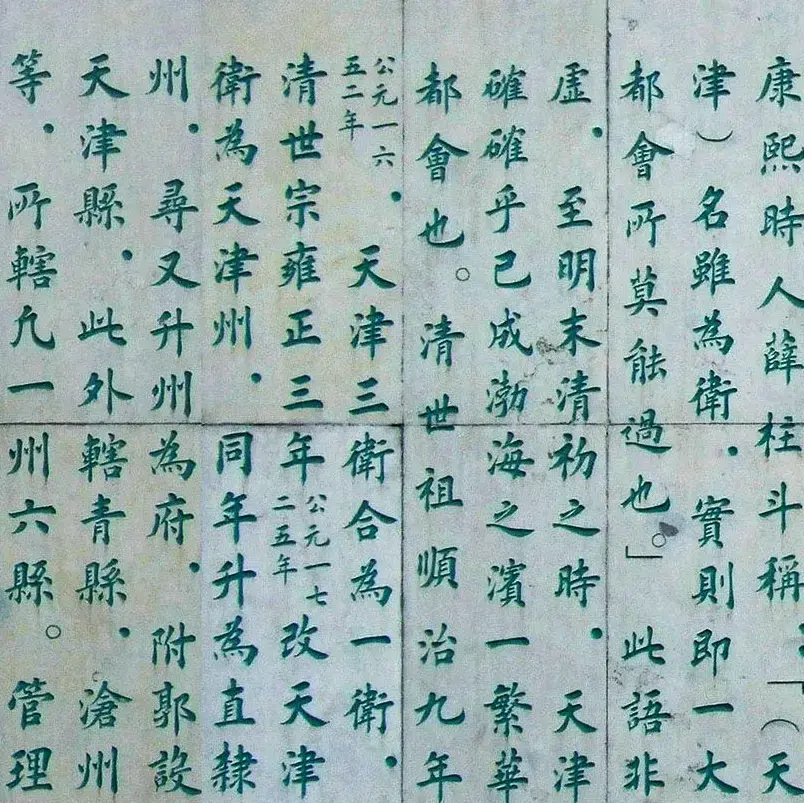 康熙時人薛柱斗稱.「(天
津)名雖為衛.實則即一大
都會所莫能過也。」此語非
虛.至明末清初之時.天津
確確乎已成渤海之濱一繁華
都會也。清世祖順治九年
公元一六
五二年
.天津三衛合為一衛.
清世宗雍正三年
公元一七
二五年
改天津
衛為天津州.同年升為直隸
州.尋又升州為府.附郭設
天津縣.此外轄青縣.滄州
等.所轄凡一州六縣。管理